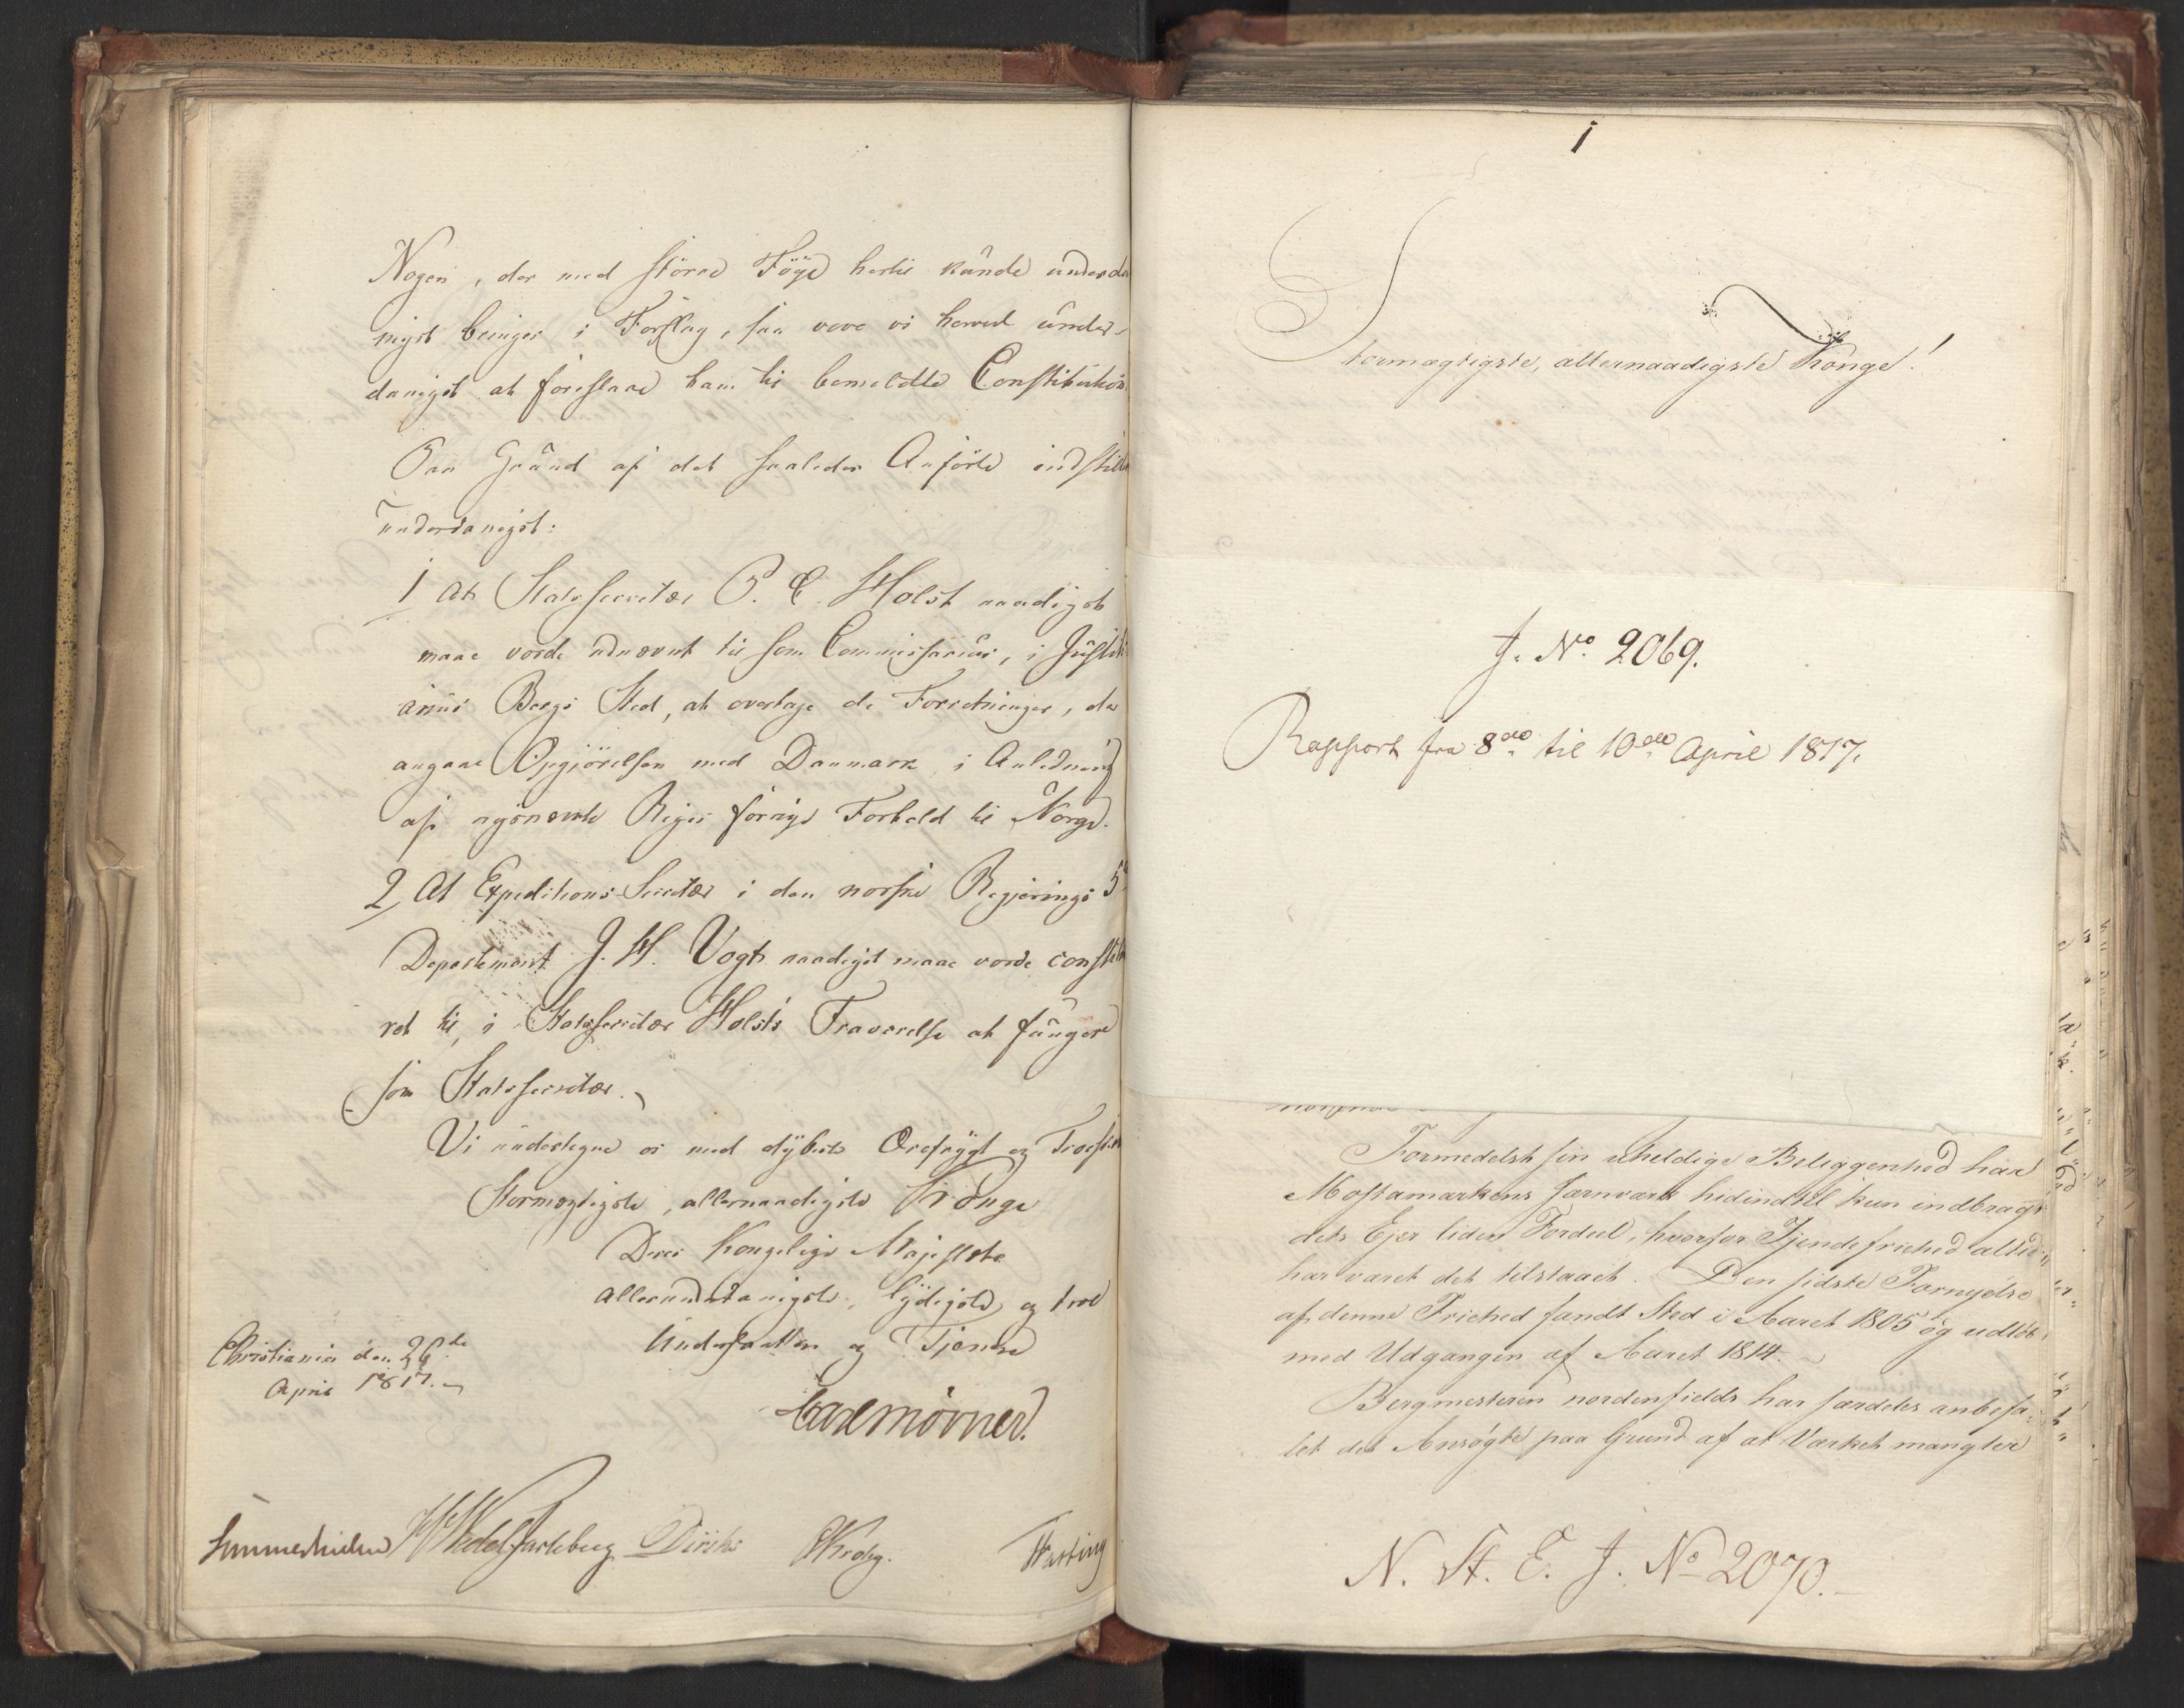 Nogen, der med större Föye hertil kunde underda
nigst bringes i Forslag, saa vove vi herved under-
danigst at foreslaae ham til bemeldte Constitution
Paa Grund af det saaledes Anførte indstilles
underdanigst:
1 At Statssecretær P. C. Holst naadigst
maae vorde udnævnt til som Commissarius, i Justiti
arius Bergs Sted, at overtage de Forretninger, der
angaae Opgjörelsen med Danmark i Anledning
af nysnævnte Riges forrige Forhold til Norge.
2, At Expeditions-Secretær i den norske Regjerings 5te
Departement J. H. Vogt naadigst maae vorde constitue
ret til, i Statssecretær Holsts Fraværelse at fungere
som Statssecretær.
Vi undertegne os med dybeste Ærefrygt og Troeskab
Stormægtigste, allernaadigste Konge
Deres Kongelige Majestæts
allerunderdanigste, lydigste og troe
Undersaatter og Tjenere
Christiania den 26de
April 1817.
Carl Mörner.
Sommerhielm HWedel Jarlsberg Diriks Krohg. Fasting
1
Stormægtigste, allernaadigste Konge!
J. No. 2069.
Rapport fra 8de til 10de April 1817.
Formedelst sin uheldige Beliggenhed har
Mostamarkens Jernværk hidindtil kun indbragt
dets Ejer liden Fordeel, hvorfor Tjendefriehed altid
har været det tilstaaet. Den sidste Fornyelse
af denne Friehed fandt Sted i Aaret 1805 og udlöb
med Udgangen af Aaret 1814.
Bergmesteren nordenfields har særdeles anbefa-
let det Ansögte paa Grund af at Værket mangler
N. St. E. J. No 2070.